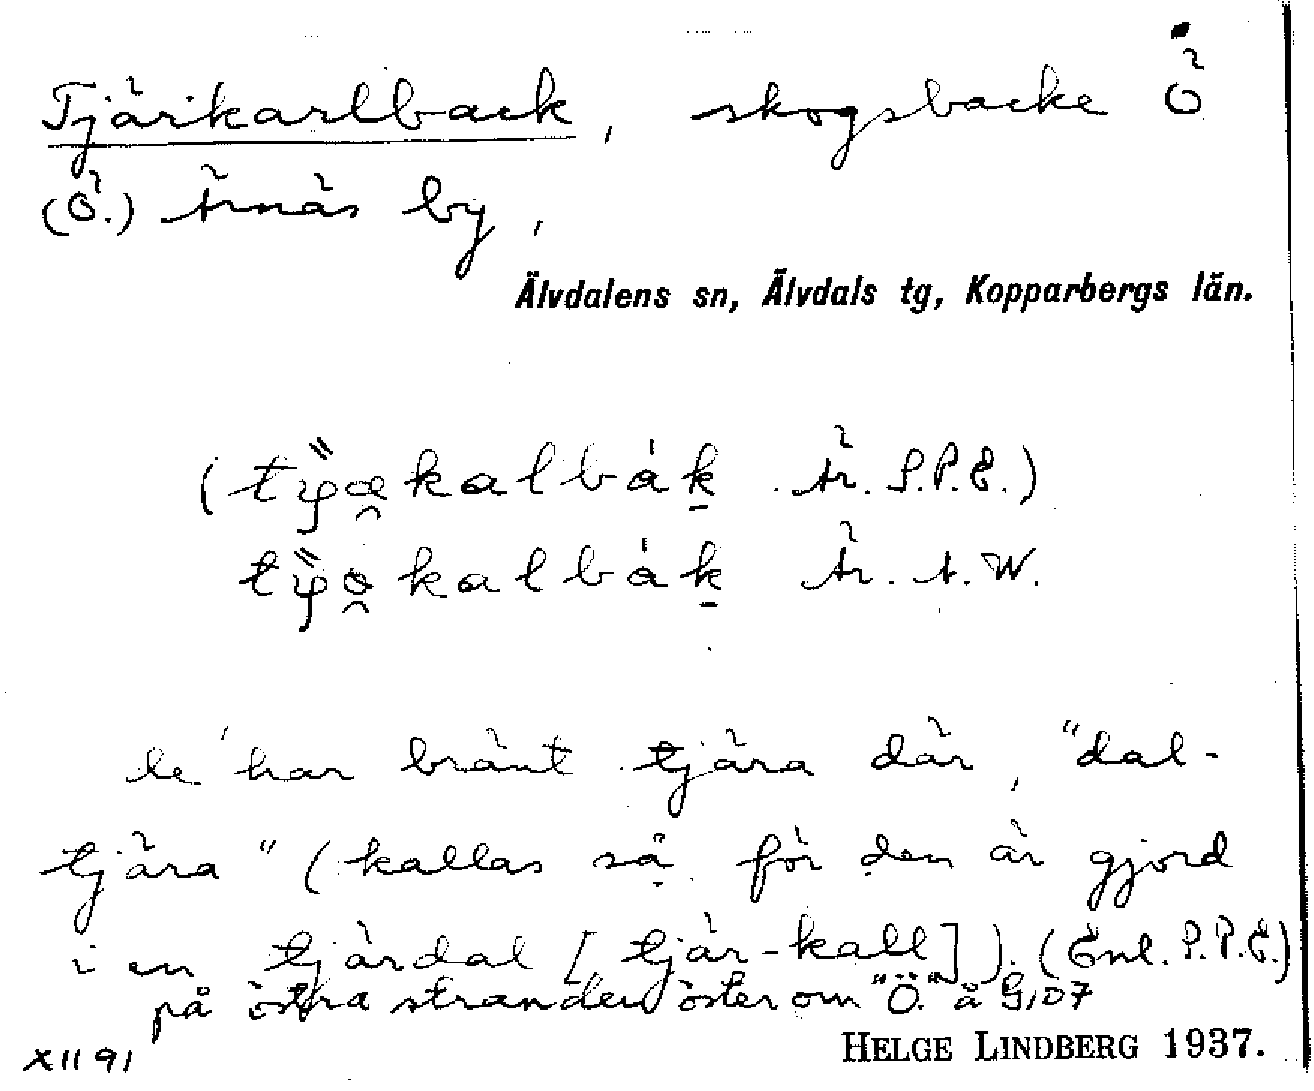 Tjärikarlback, skogsbacke Ö
(Ö.) Ärnäs by,
Älvdalens sn, Älvdals tg, Kopparbergs län.
kalbák Är. S.P.E.)
kalbák Är. A.W.
har bränt tjära där, "dal-
tjära" (kallas så för den är gjord
i en tjärdal [tjär-kall]). (Enl. P.P.E.)
på östra stranden öster om "Ö." å G, D7
XII 91
HELGE LINDBERG 1937.